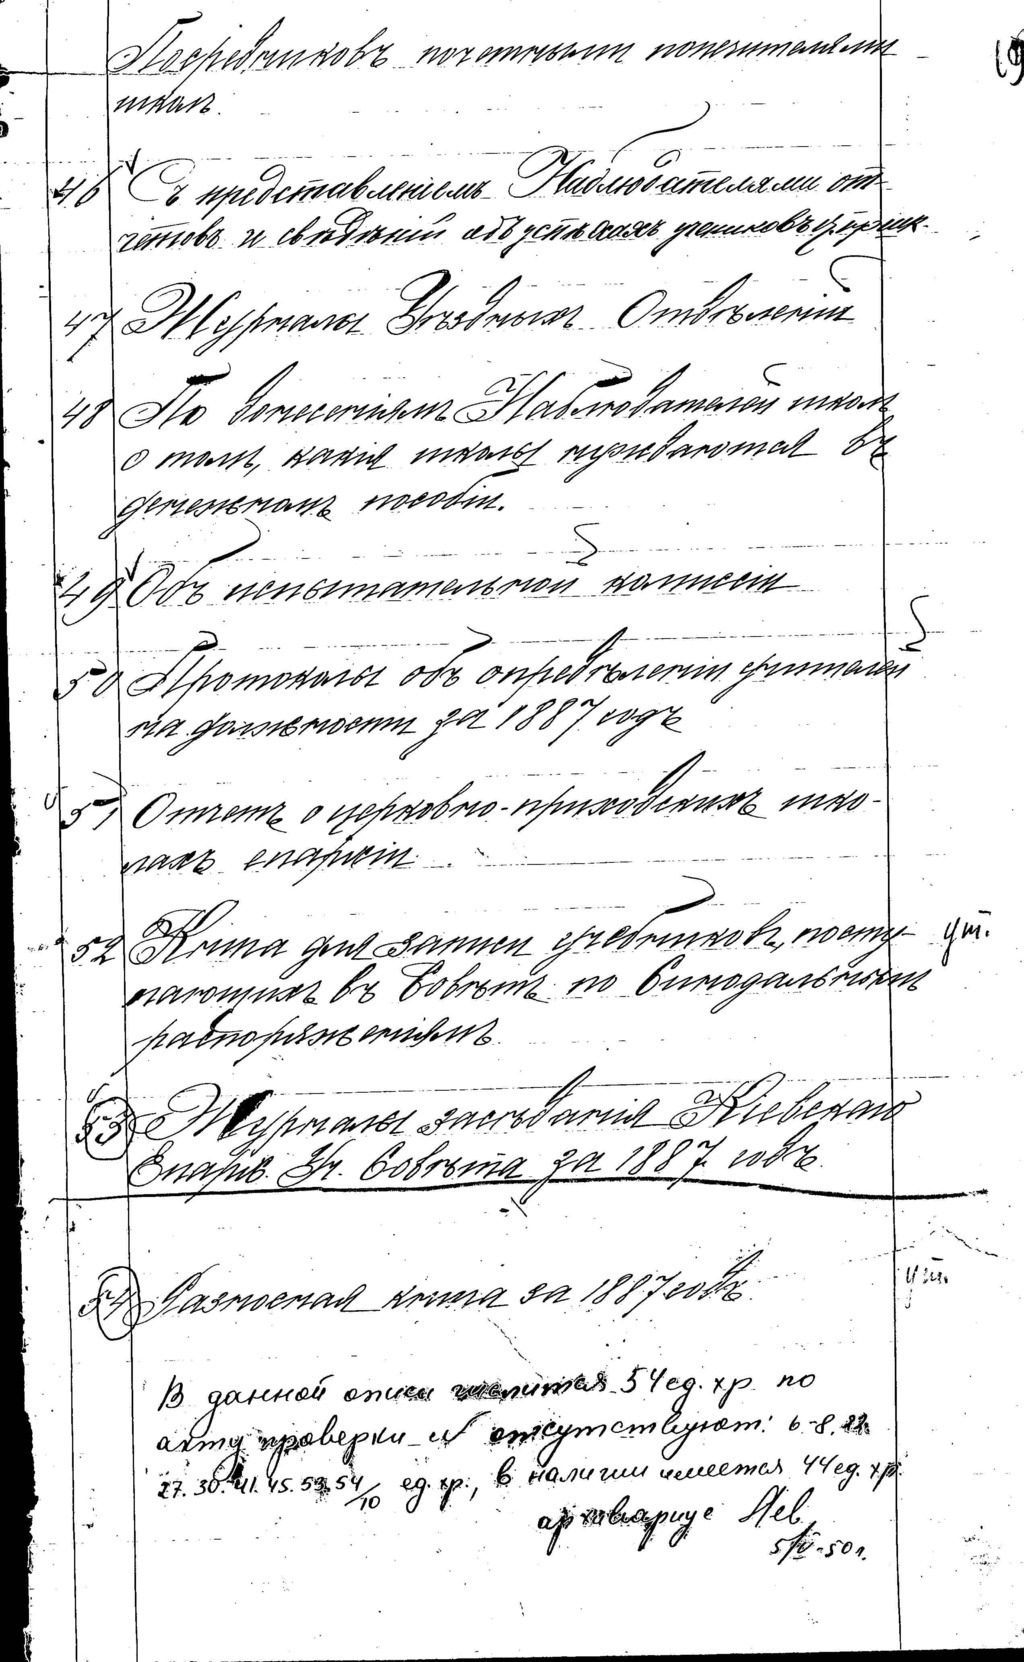 Посредниковъ почетными попечителями
школ.
46 Съ представленіемъ Наблюдателями от-
четовъ и свѣдѣній объ успѣхахъ учениковъ
47 Журналы Уѣздныхъ Отдѣленій
48 По донесеніямъ Наблюдателей школъ
о томъ, какія школы нуждаются въ
денежномъ пособіи.
49 Объ испытательной коммиссіи
50 Протоколы объ опредѣленіи учителей
на должности за 1887 годъ
51 Отчетъ о церковно-приходскихъ шко-
лахъ епархіи
52 Книга для записи учебниковъ, посту- ут.
пающихъ въ Совѣтъ по Синодальнымъ
распоряженіямъ
53 Журналы засѣданія Кіевскаго
Епарх. Уч. Совѣта за 1887 годъ.
54 Разносная книга за 1887 годъ. ут.
В данной описи числится 54 ед. хр. по
акту проверки отсутствуют: 6-8. 22.
27. 30. 41. 45. 53. 54 /10 ед. хр., в наличии имеется 44 ед. хр.
архивариус Лев
5/V-50 г.